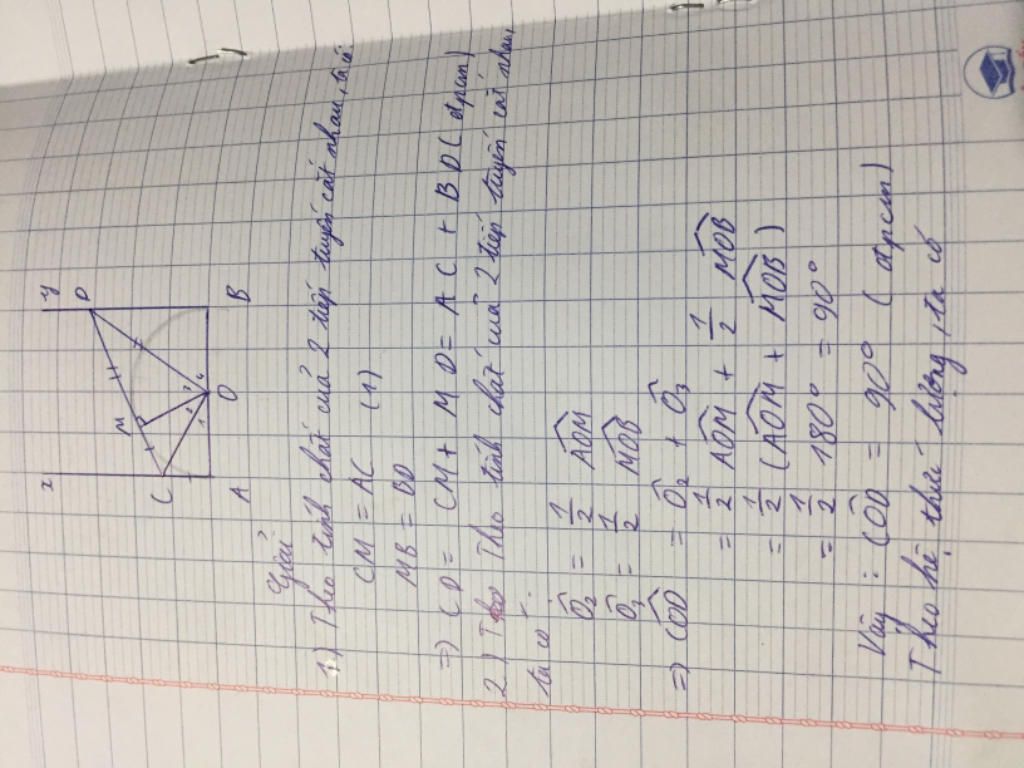 x y
D
M
C
1 2 3 4
A O B
Giải
1.) Theo tính chất của 2 tiếp tuyến cắt nhau, ta có
CM = AC (1)
MB = BD
=> CD = CM + MD = AC + BD (đpcm)
2.) Theo Theo tính chất của 2 tiếp tuyến cắt nhau,
ta có :
Ô₂ = 1/2 AOM
Ô₃ = 1/2 MOB
=> COD = Ô₂ + Ô₃
= 1/2 AOM + 1/2 MOB
= 1/2 (AOM + MOB)
= 1/2 180° = 90°
Vậy : COD = 90° (đpcm)
Theo hệ thức lượng, ta có